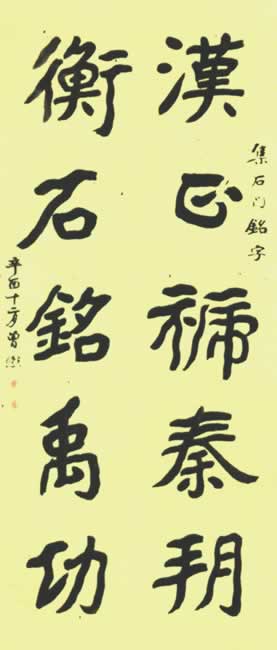 漢正禘秦朔
集石門銘字
衡石銘禹功
辛酉十月曾熙